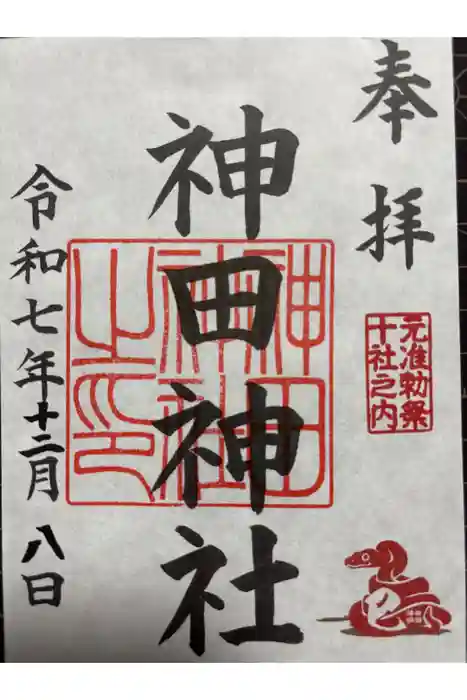 奉拝
元准勅祭
十社之内
神田神社
神田
神社
之印
令和七年十二月八日